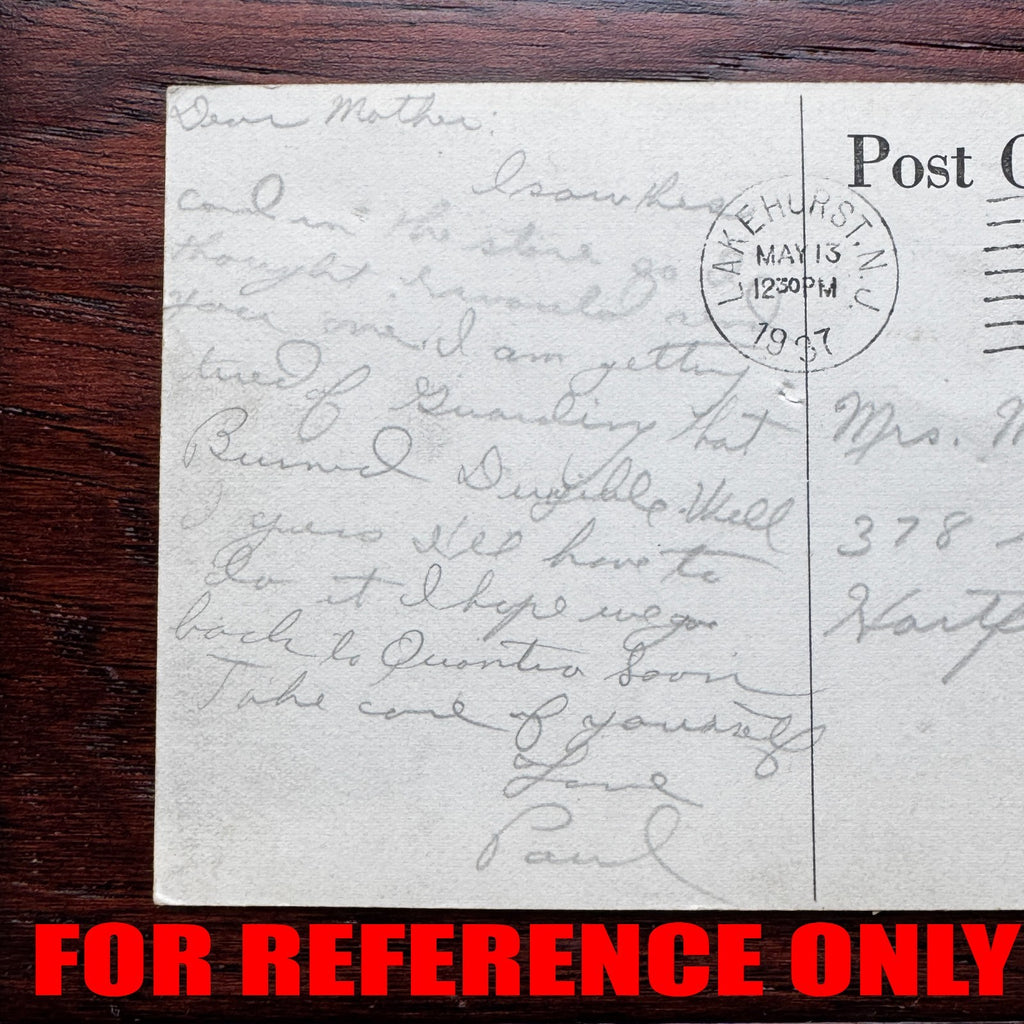 Dear Mother:
I saw this
card in the store so I
thought I would send
you one. I am getting
tired of Guarding that
Burned Dirigible. Well
I guess I'll have to
do it I hope we go
back to Quantico Soon
Take care of yourself
Love
Paul
Post C
LAKEHURST, N.J.
MAY 13
1230PM
1937
Mrs. M
378
Hartf
FOR REFERENCE ONLY